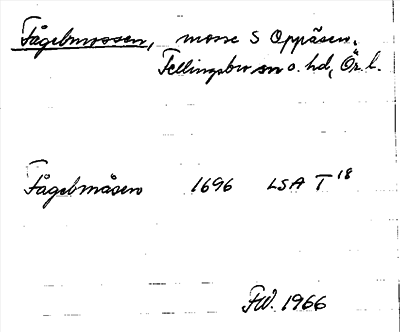 Fågelmossen, mosse S Oppåsen.
Fellingsbro sn o. hd, Ör. l.
Fågelmåsen 1696 LSA T 18
FW. 1966